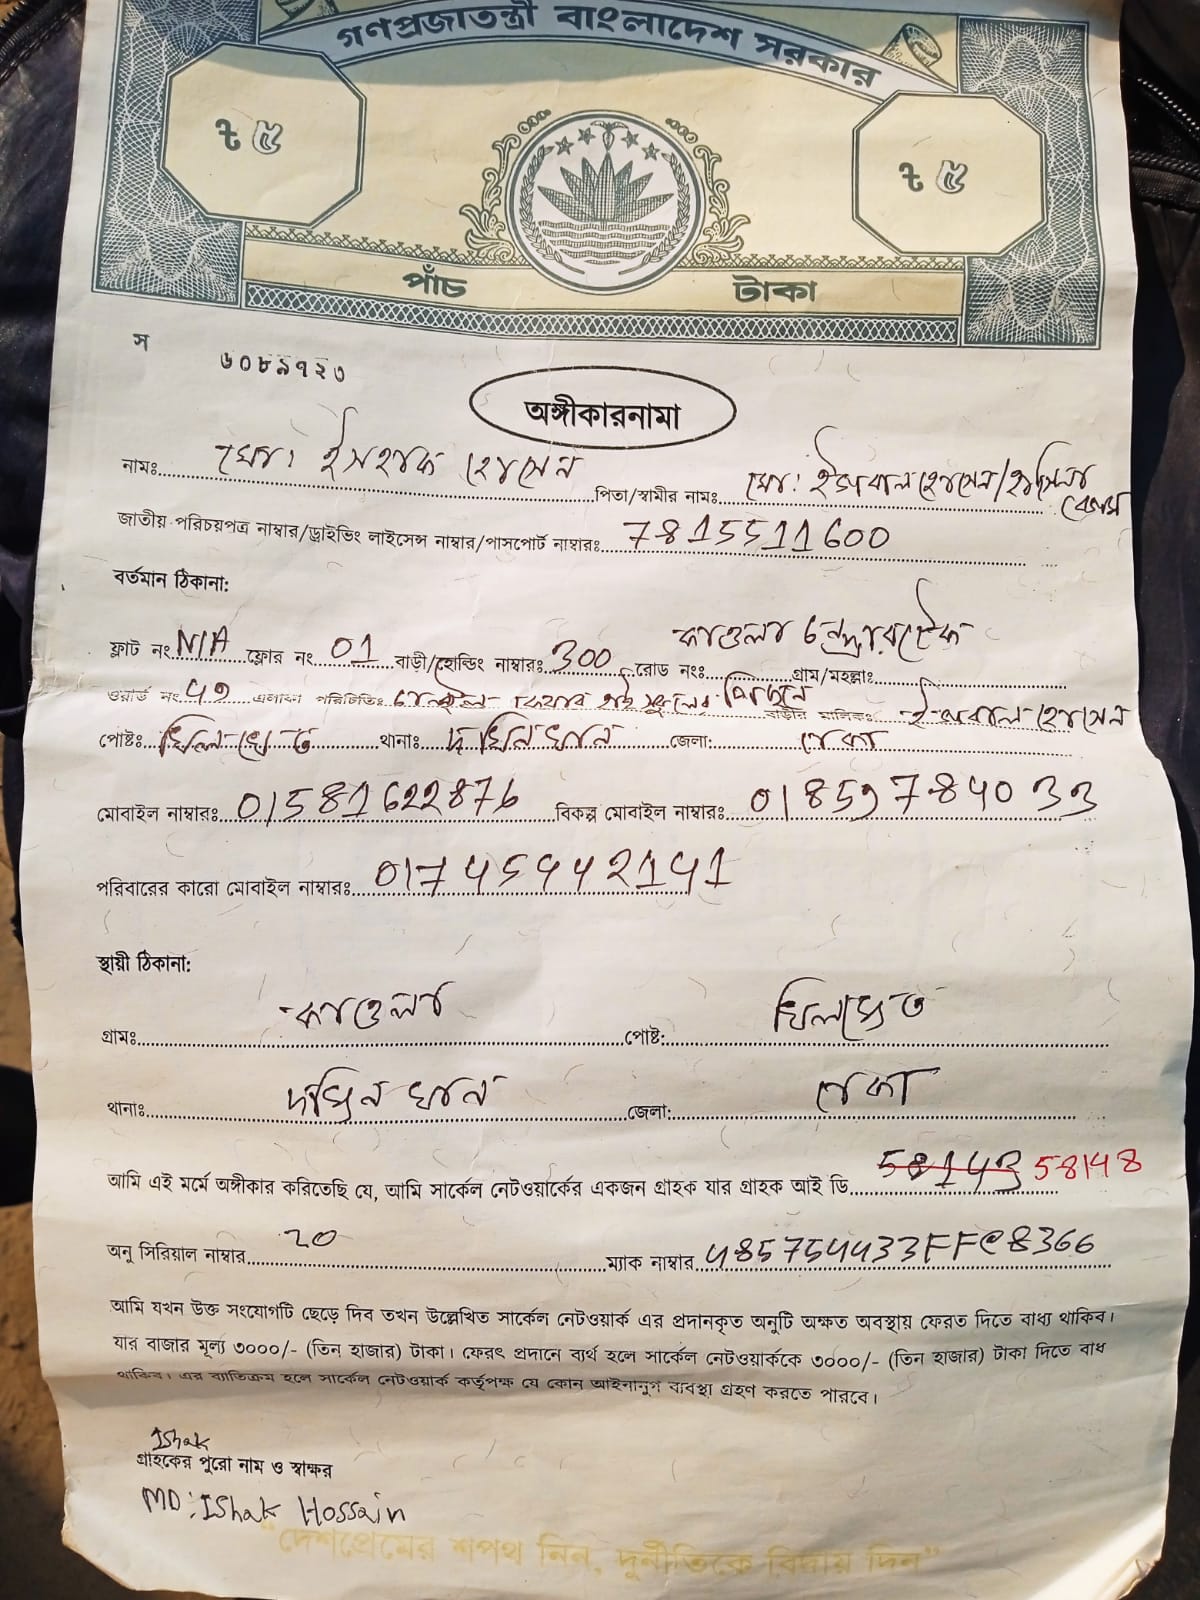 গণপ্রজাতন্ত্রী বাংলাদেশ সরকার
৳ ৫
৳ ৫
পাঁচ টাকা
স
৬০৮৯৭২৩
অঙ্গীকারনামা
নামঃ মোঃ ইসহাক হোসেন পিতা/স্বামীর নামঃ মোঃ ইকবাল হোসেন/হাসিনা বেগম
জাতীয় পরিচয়পত্র নাম্বার/ড্রাইভিং লাইসেন্স নাম্বার/পাসপোর্ট নাম্বারঃ 7815511600
বর্তমান ঠিকানা:
ফ্লাট নং N/A ফ্লোর নং 01 বাড়ী/হোল্ডিং নাম্বারঃ 300 রোড নংঃ কাওলা গ্রাম/মহল্লাঃ
ওয়ার্ড নং ৪৭ এলাকা পরিচিতিঃ হাই স্কুলের পিছনে বাড়ীর মালিকঃ ইকবাল হোসেন
পোষ্টঃ খিলখেত থানাঃ দখিনখান জেলা: ঢাকা
মোবাইল নাম্বারঃ 01581622876 বিকল্প মোবাইল নাম্বারঃ 01859784033
পরিবারের কারো মোবাইল নাম্বারঃ
স্থায়ী ঠিকানা:
গ্রামঃ কাওলা পোষ্ট: খিলখেত
থানাঃ দখিনখান জেলা: ঢাকা
আমি এই মর্মে অঙ্গীকার করিতেছি যে, আমি সার্কেল নেটওয়ার্কের একজন গ্রাহক যার গ্রাহক আই ডি 58143 58148
অনু সিরিয়াল নাম্বার 20 ম্যাক নাম্বার 4857544333FFC8366
আমি যখন উক্ত সংযোগটি ছেড়ে দিব তখন উল্লেখিত সার্কেল নেটওয়ার্ক এর প্রদানকৃত অনুটি অক্ষত অবস্থায় ফেরত দিতে বাধ্য থাকিব।
যার বাজার মূল্য ৩০০০/- (তিন হাজার) টাকা। ফেরৎ প্রদানে ব্যর্থ হলে সার্কেল নেটওয়ার্ককে ৩০০০/- (তিন হাজার) টাকা দিতে বাধ
থাকিব। এর ব্যতিক্রম হলে সার্কেল নেটওয়ার্ক কর্তৃপক্ষ যে কোন আইনানুগ ব্যবস্থা গ্রহণ করতে পারবে।
Ishak
গ্রাহকের পুরো নাম ও স্বাক্ষর
MD: Ishak Hossain
"দেশপ্রেমের শপথ নিন, দুর্নীতিকে বিদায় দিন"